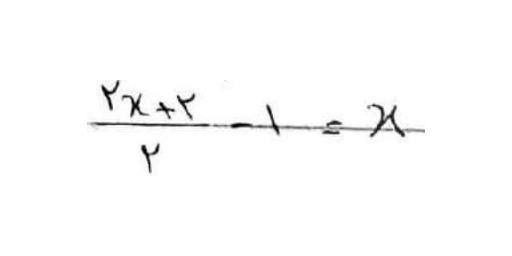 ۲x+۲
۲
-۱ = x